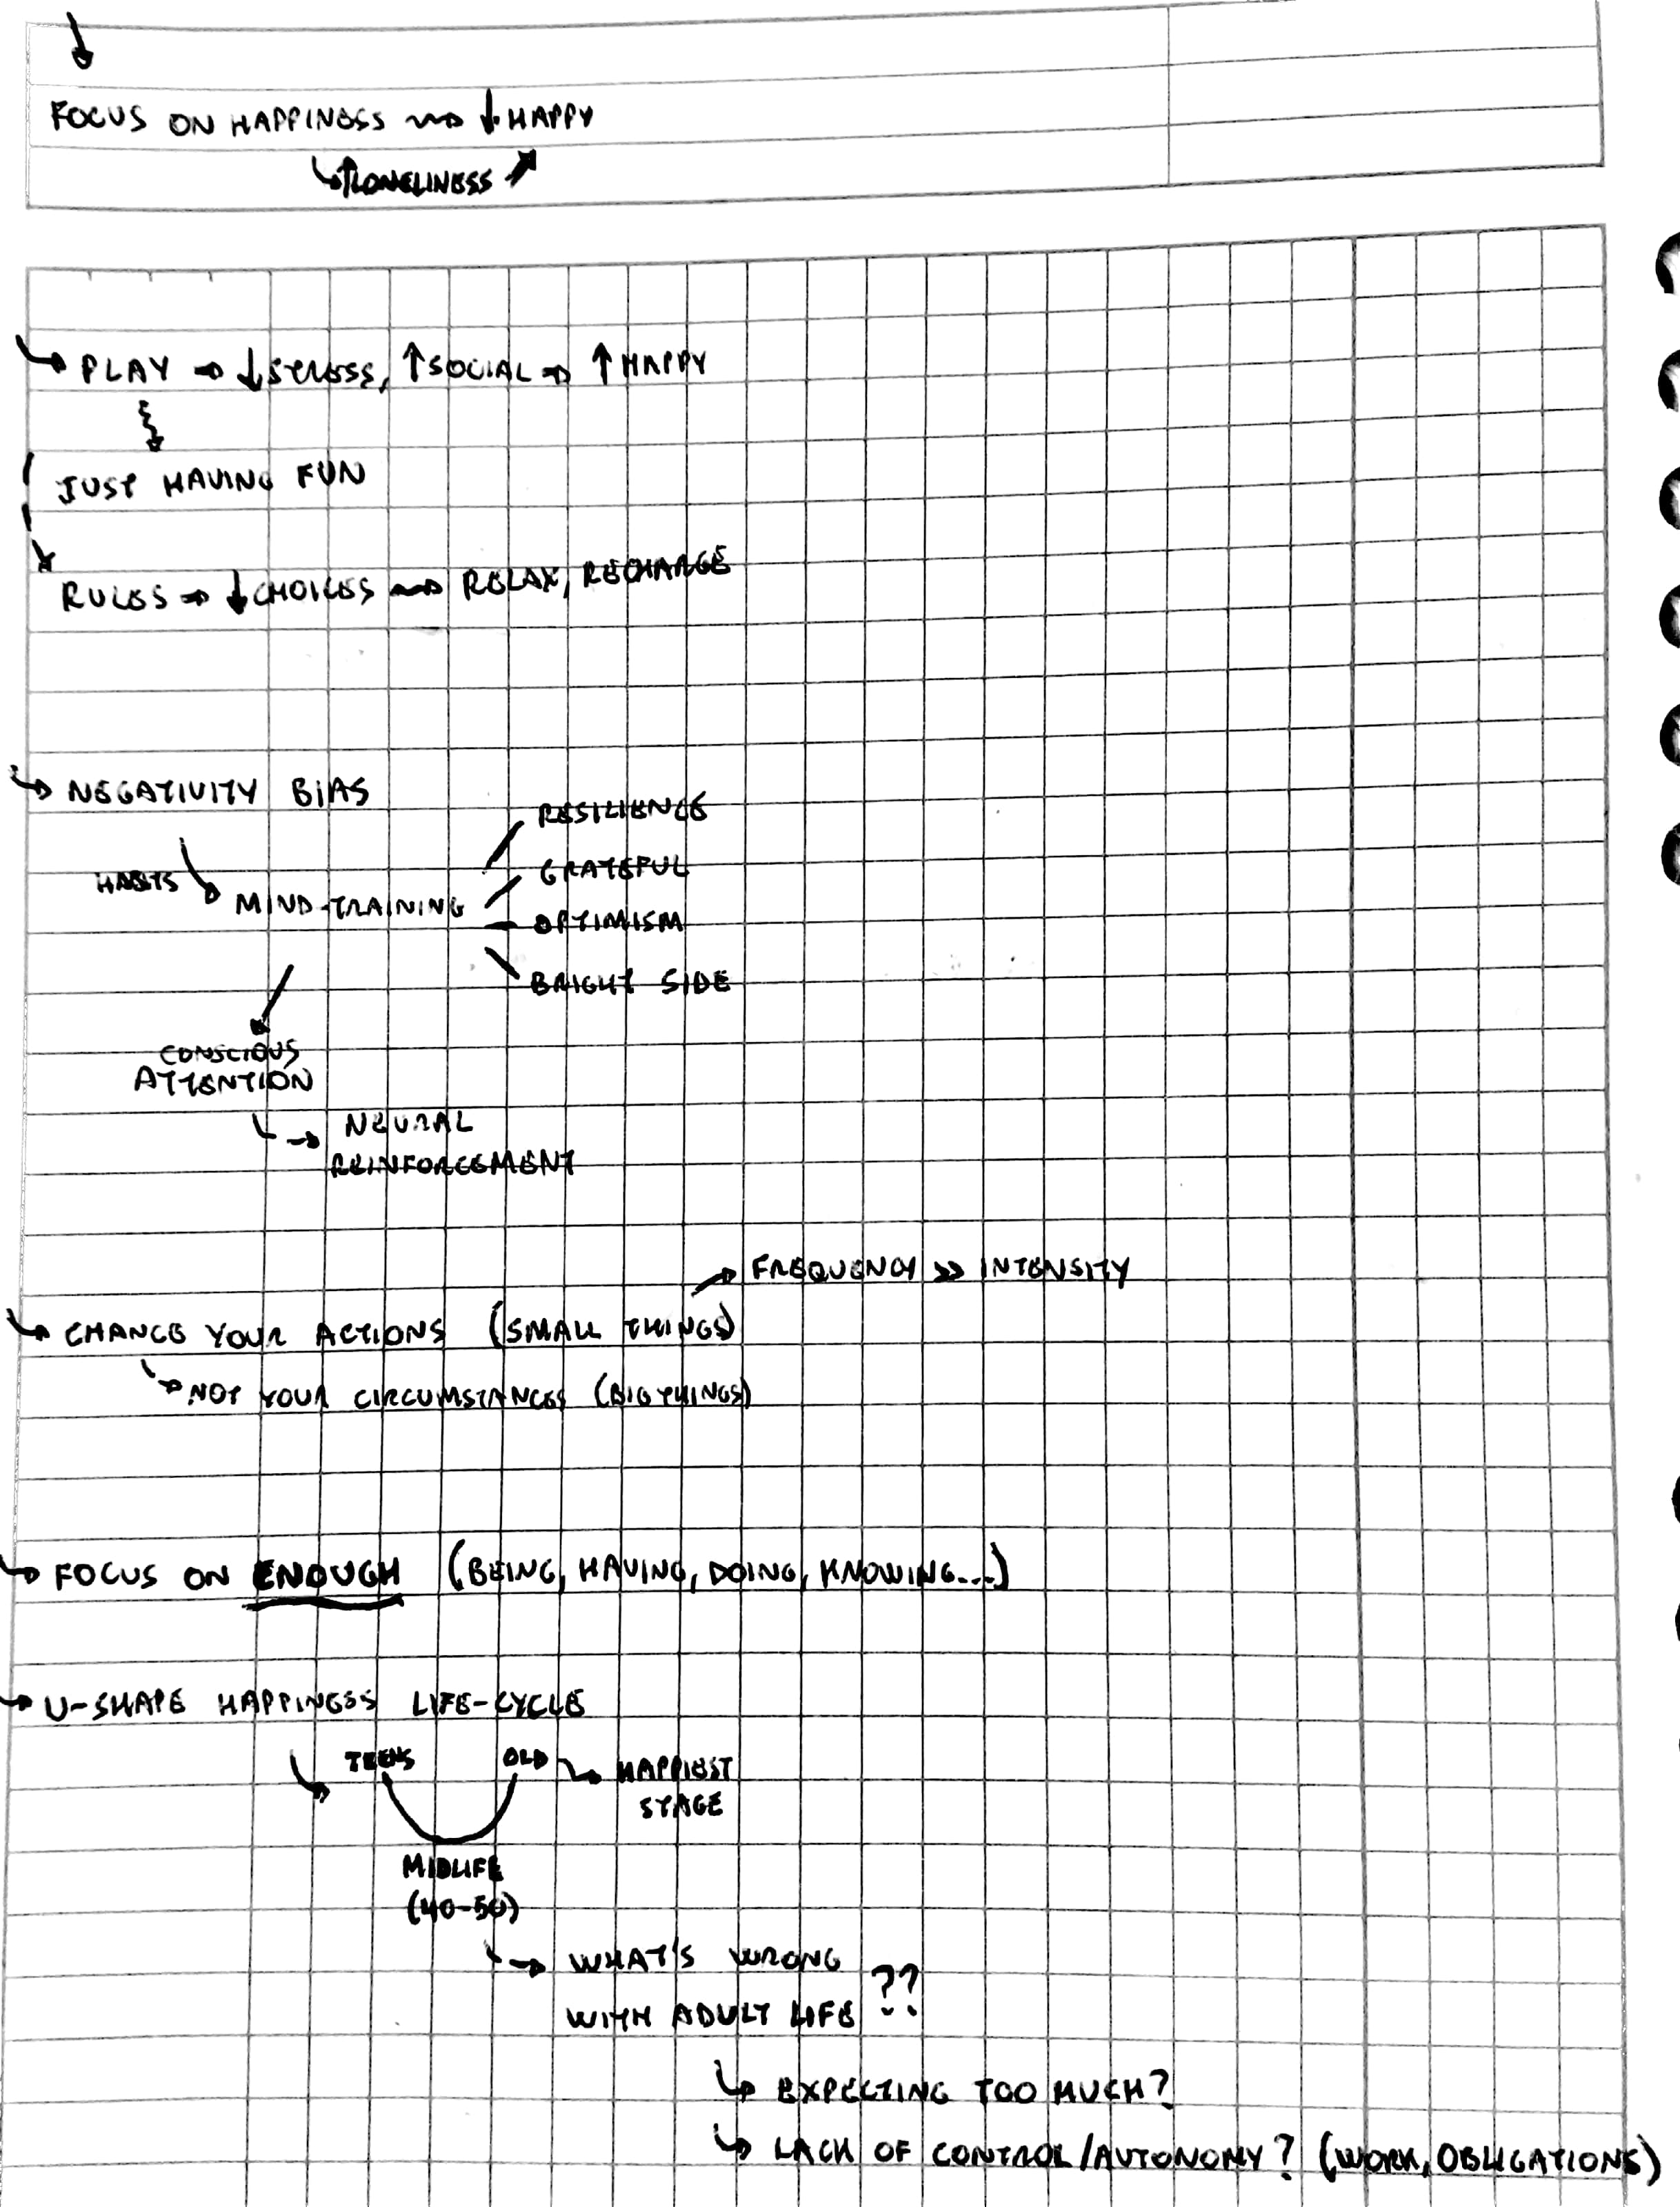 ↓
FOCUS ON HAPPINESS ⇝ ↓ HAPPY
↳ ↑LONELINESS ↗
↳ PLAY → ↓STRESS, ↑SOCIAL → ↑HAPPY
JUST HAVING FUN
RULES → ↓CHOICES ⇝ RELAX, RECHARGE
↳ NEGATIVITY BIAS
RESILIENCE
GRATEFUL
HABITS ↘ MIND-TRAINING
OPTIMISM
BRIGHT SIDE
CONSCIOUS
ATTENTION
↳ NEURAL
REINFORCEMENT
→ FREQUENCY >> INTENSITY
↳ CHANGE YOUR ACTIONS (SMALL THINGS)
↳ NOT YOUR CIRCUMSTANCES (BIG THINGS)
↳ FOCUS ON ENOUGH (BEING, HAVING, DOING, KNOWING...)
↳ U-SHAPE HAPPINESS LIFE-CYCLE
TEENS OLD → HAPPIEST
STAGE
MIDLIFE
(40-50)
↳ WHAT'S WRONG
WITH ADULT LIFE ??
↳ EXPECTING TOO MUCH?
↳ LACK OF CONTROL/AUTONOMY? (WORK, OBLIGATIONS)